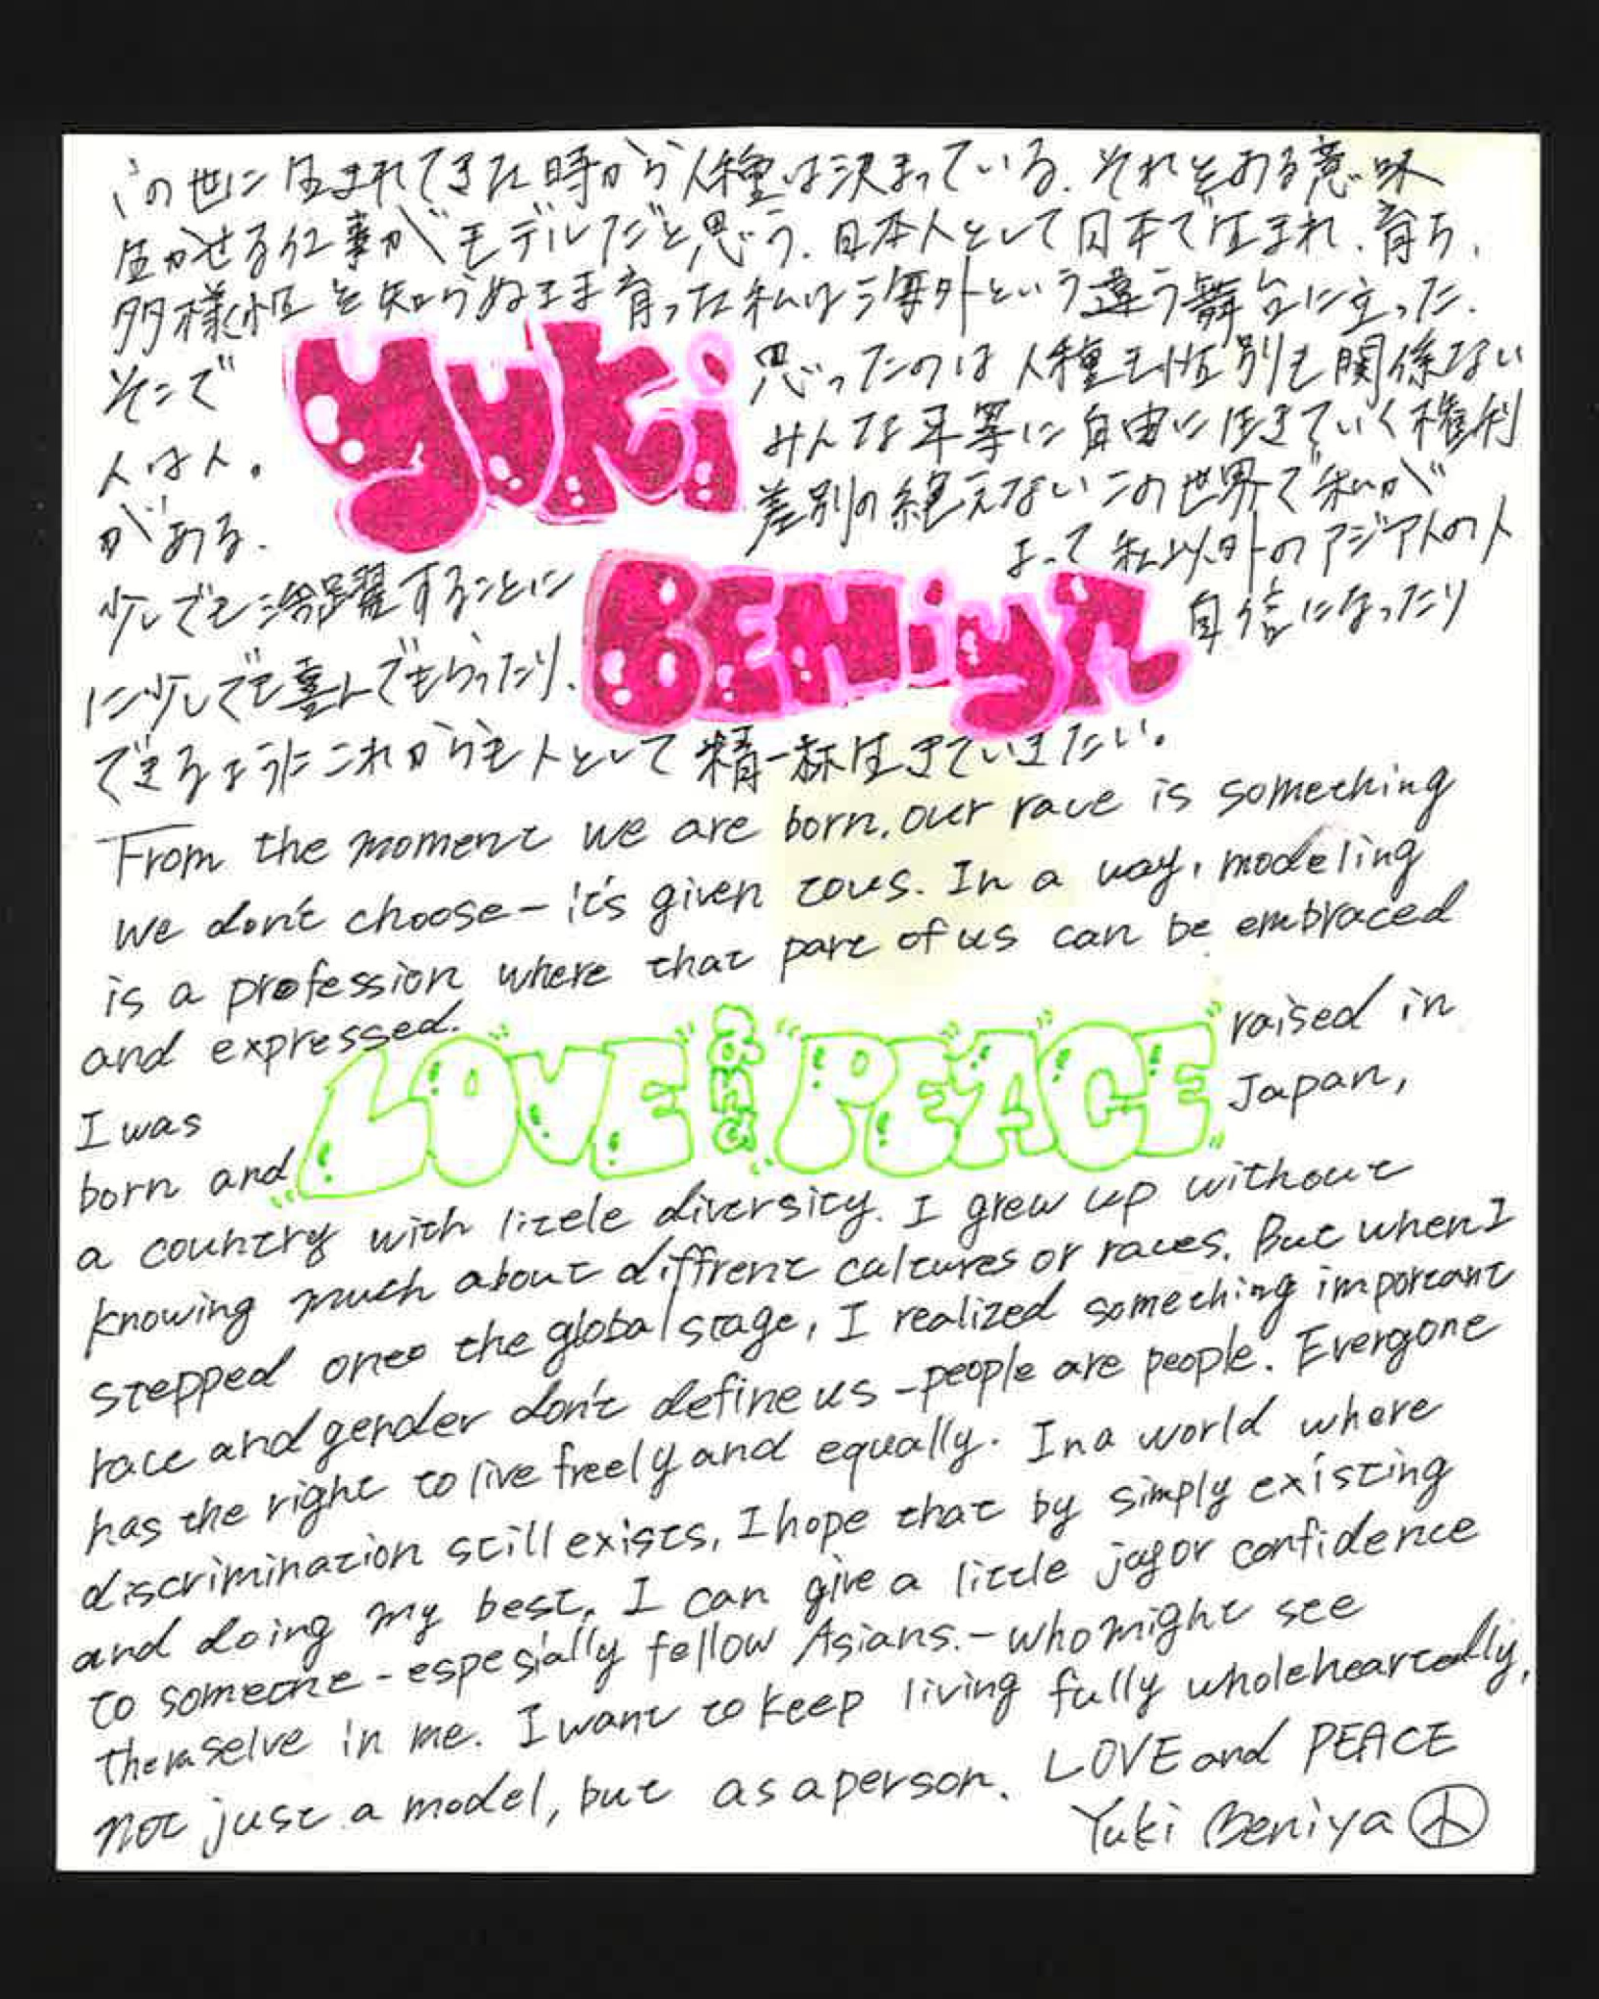 この世に生まれてきた時から人種は決まっている. それをある意味
生かせる仕事がモデルだと思う. 日本人として日本で生まれ. 育ち.
多様性を知らぬまま育った私は海外という違う舞台に立った.
そこで 思ったのは 人種も性別も関係ない
人は人。 みんな平等に自由に生きていく権利
がある. 差別の絶えないこの世界で私が
少しでも活躍することに よって私以外のアジア人の人
に少しでも喜んでもらったり. 自信になったり
できるようにこれからも人として精一杯生きていきたい。
YUKi
BENiYA
From the moment we are born, our race is something
we don't choose - it's given to us. In a way, modeling
is a profession where that part of us can be embraced
and expressed.
I was
born and raised in
Japan,
LOVE and PEACE
a country with little diversity. I grew up without
knowing much about diffrent caltures or races. But when I
stepped onto the global stage, I realized something important
race and gender don't define us - people are people. Everyone
has the right to live freely and equally. In a world where
discrimination still exists, I hope that by simply existing
and doing my best, I can give a little joy or confidence
to someone - espesially fellow Asians. - who might see
themselve in me. I want to keep living fully wholeheartedly,
not just a model, but as a person. LOVE and PEACE
Yuki Beniya